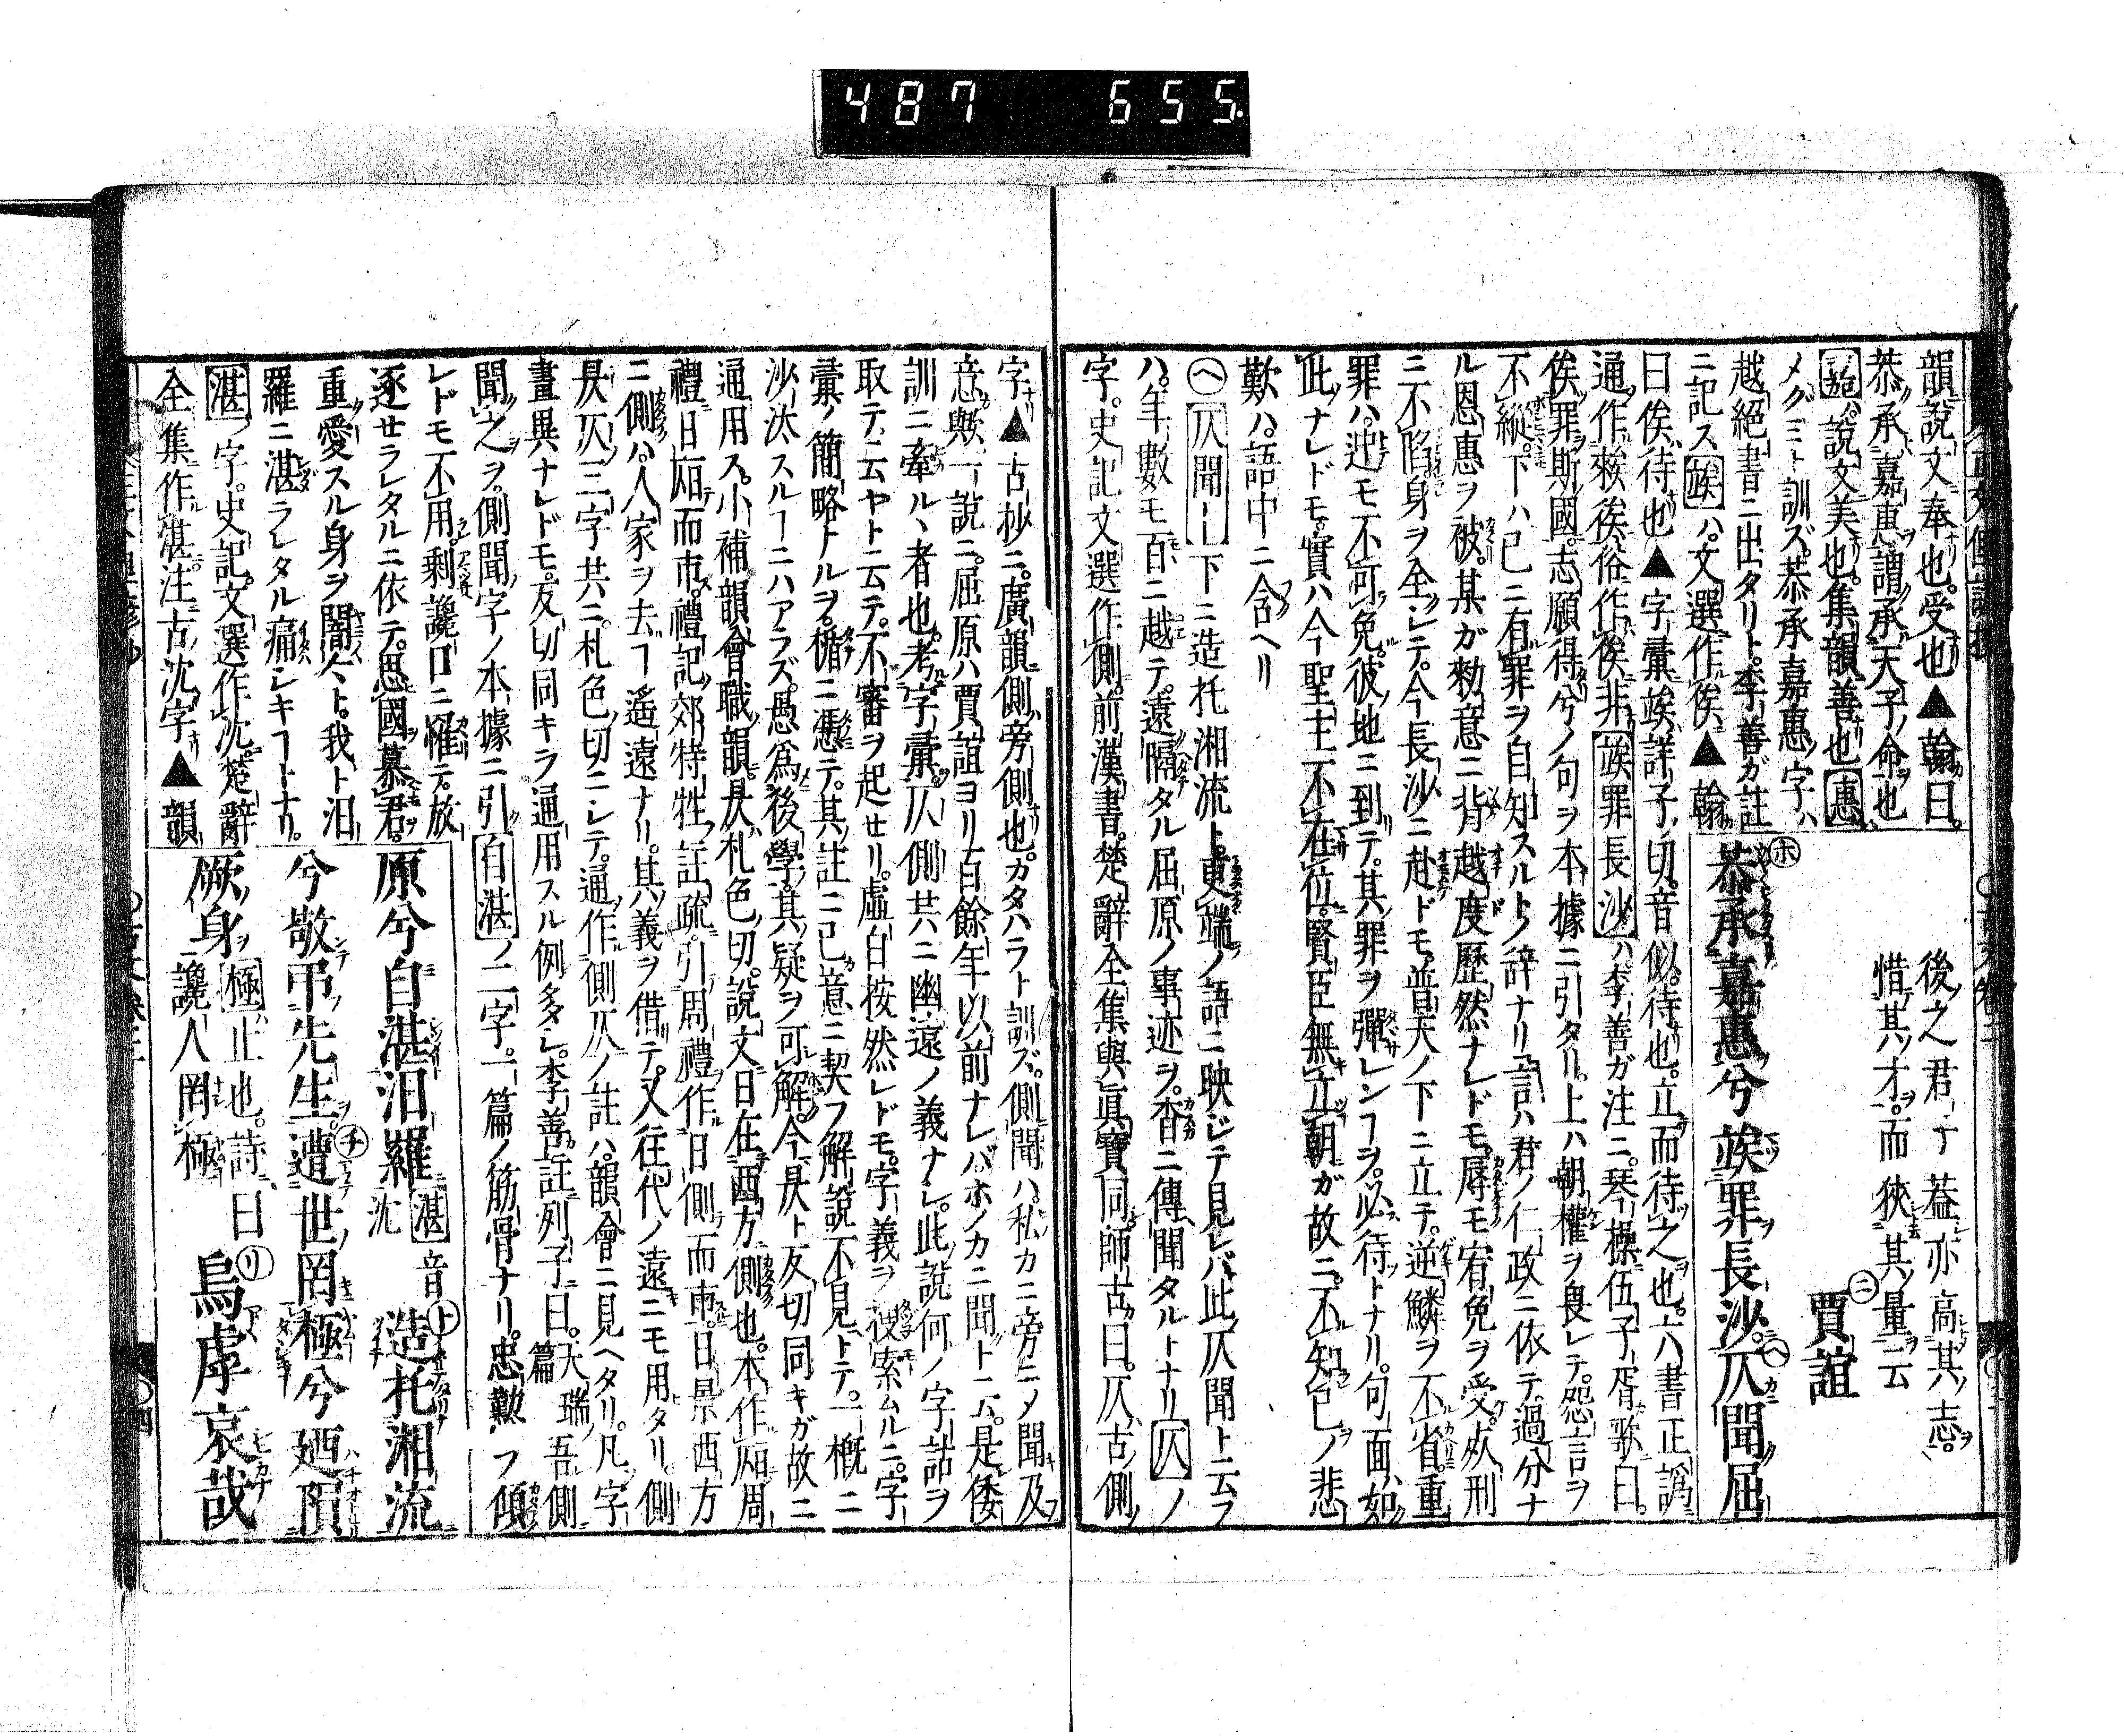 487 655
韻説文奉也。受也▲翰曰。
恭承嘉惠謂承天子ノ命也
嘉ハ説文美也。集韻善也 惠
メグミト訓ズ。恭承嘉惠ノ字ハ
越絶書ニ出タリト。李善ガ註
ニ記ス 竢ハ。文選作俟▲翰
後之君子蓋亦高其志。
惜其才。而狹其量云
㊁ 賈誼
㋭恭承嘉惠兮竢罪長沙。㋬仄聞屈
曰俟待也▲字彙竢詳子切。音似。待也。立而待之也。六書正譌
通作竢俟俗作俟非 竢罪長沙ハ。李善ガ注ニ。琴操伍子胥歌曰。
俟罪斯國。志願得兮ノ句ヲ本據ニ引タリ。上ハ朝權ヲ畏レテ。怨言ヲ
不縱。下ハ已ニ有罪ヲ自知スルトノ辞ナリ言ハ君ノ仁政ニ依テ。過分ナ
ル恩惠ヲ被。某ガ勅意ニ背越度歷然ナレドモ。辱モ宥免ヲ受。死刑
ニ不陷身ヲ全シテ。今長沙ニ赴ドモ。普天ノ下ニ立テ。逆鱗ヲ不省。重
罪ハ。迚モ不可免。彼地ニ到テ。其罪ヲ彈レンコヲ。必待トナリ。句面如
此ナレドモ。實ハ今聖主不在位。賢臣無立朝ガ故ニ。不知已ノ悲
歎ハ。語中ニ含ヘリ
㋬仄聞―ハ下ニ造托湘流ト。更端ノ語ニ映ジテ見レバ此仄聞ト云フ
ハ。年數モ百ニ越テ。遠隔タル屈原ノ事迹ヲ。杳ニ傳聞タルトナリ 仄ノ
字。史記文選作側。前漢書。楚辭全集與眞寶同。師古曰。仄古側ノ
字▲古抄ニ。廣韻側旁側也。カタハラト訓ズ。側聞ハ。私カニ旁ニメ聞及
意歟一説ニ。屈原ハ賈誼ヨリ百餘年以前ナレバホノカニ聞トニハ。是倭
訓ニ牽ルヽ者也。考字彙。仄側共ニ幽遠ノ義ナレ。此説何ノ字詁ヲ
取テ。云ヤト云テ。不審ヲ起セリ。虛白按然レドモ。字義ヲ搜索ムルニ。字
彙ノ簡略トルヲ楯ニ憑テ。其註ニ已意ニ契フ解説不見トテ。一概ニ
沙汰スルコニハアラズ。愚爲後學。其疑ヲ可解。今昃ト仄切同キガ故ニ
通用ス。小補韻會職韻。昃札色切。説文曰在西方側也。本作㫺周
禮日㫺而市。禮記郊特牲註疏。引周禮作日側而市。日景西方
ニ側ハ。人家ヲ去コ遙遠ナリ。其義ヲ借テ。又往代ノ遠ニモ用タリ。側
昃仄三字共ニ。札色切ニシテ。通作。側仄ノ註ハ。韻會ニ見ヘタリ。凡字
畫異ナレドモ。反切同キヲ通用スル例多シ。李善註列子曰。天瑞篇 吾側
聞之ヲ。側聞字ノ本據ニ引 自湛ノ二字。一篇ノ筋骨ナリ。忠勤ヲ傾
レドモ不用。剩讒口ニ罹テ。放
逐セラレタルニ依テ。思國慕君。
重愛スル身ヲ闇々ト。我ト汨
羅ニ湛ラレタル痛シキコトナリ。
湛ノ字。史記。文選作沈。楚辭
全集作湛。注古沈字▲韻
原兮自湛汨羅 湛音沈 ㋣造托湘流
兮敬弔先生。㋠遭世罔極兮廼隕
厥身 極止也。詩曰讒人罔極 ㋷烏虖哀哉